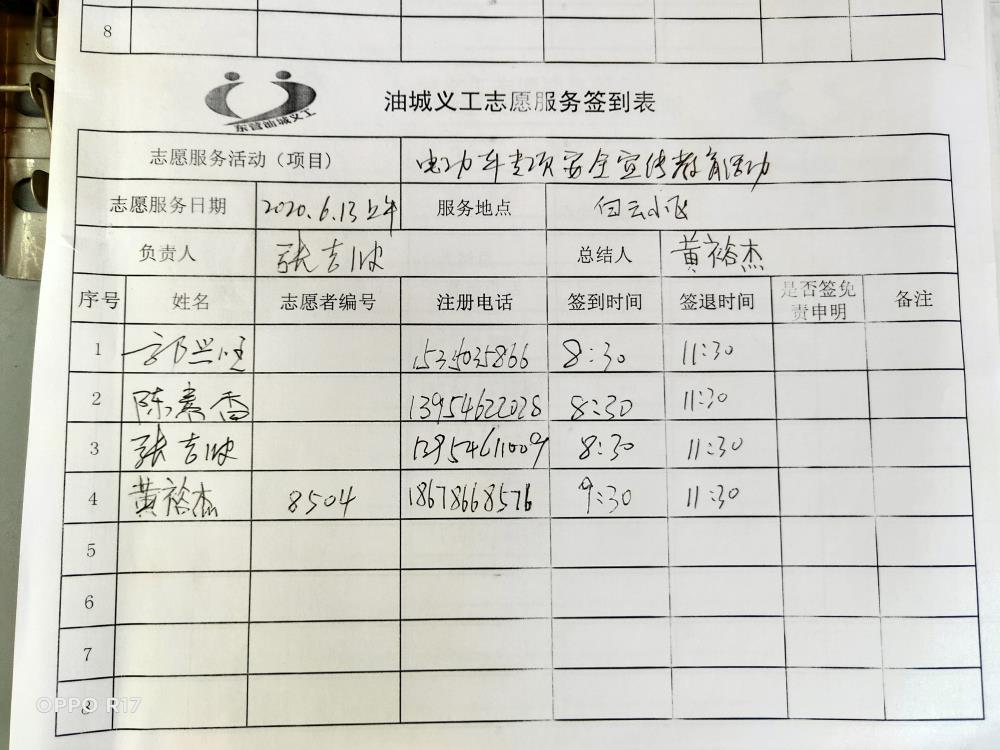 8
东营油城义工
油城义工志愿服务签到表
志愿服务活动（项目） 电动车专项安全宣传教育活动
志愿服务日期 2020.6.13上午 服务地点 白云小区
负责人 张吉波 总结人 黄裕杰
序号 姓名 志愿者编号 注册电话 签到时间 签退时间 是否签免责申明 备注
1 郭兴旺 1535035866 8:30 11:30
2 陈素香 13954622028 8:30 11:30
3 张吉波 8:30 11:30
4 黄裕杰 8504 18678668576 9:30 11:30
5
6
7
8
OPPO R17